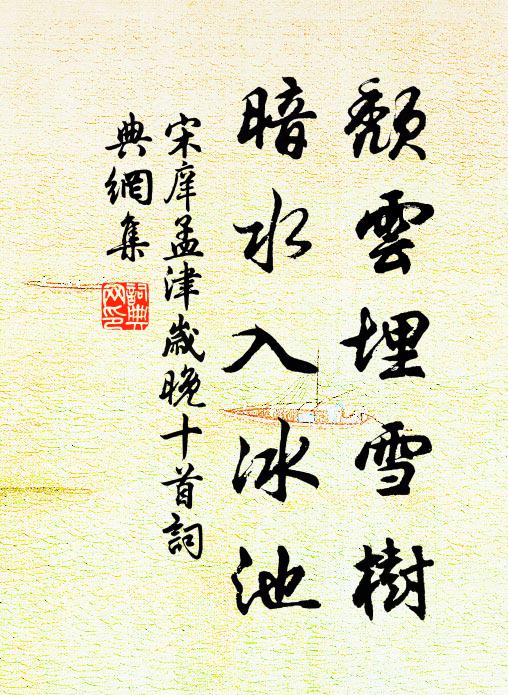 頹雲埋雪樹
暗水入冰池
宋庠孟津歲晚十首詞
典網集
詞典
网印